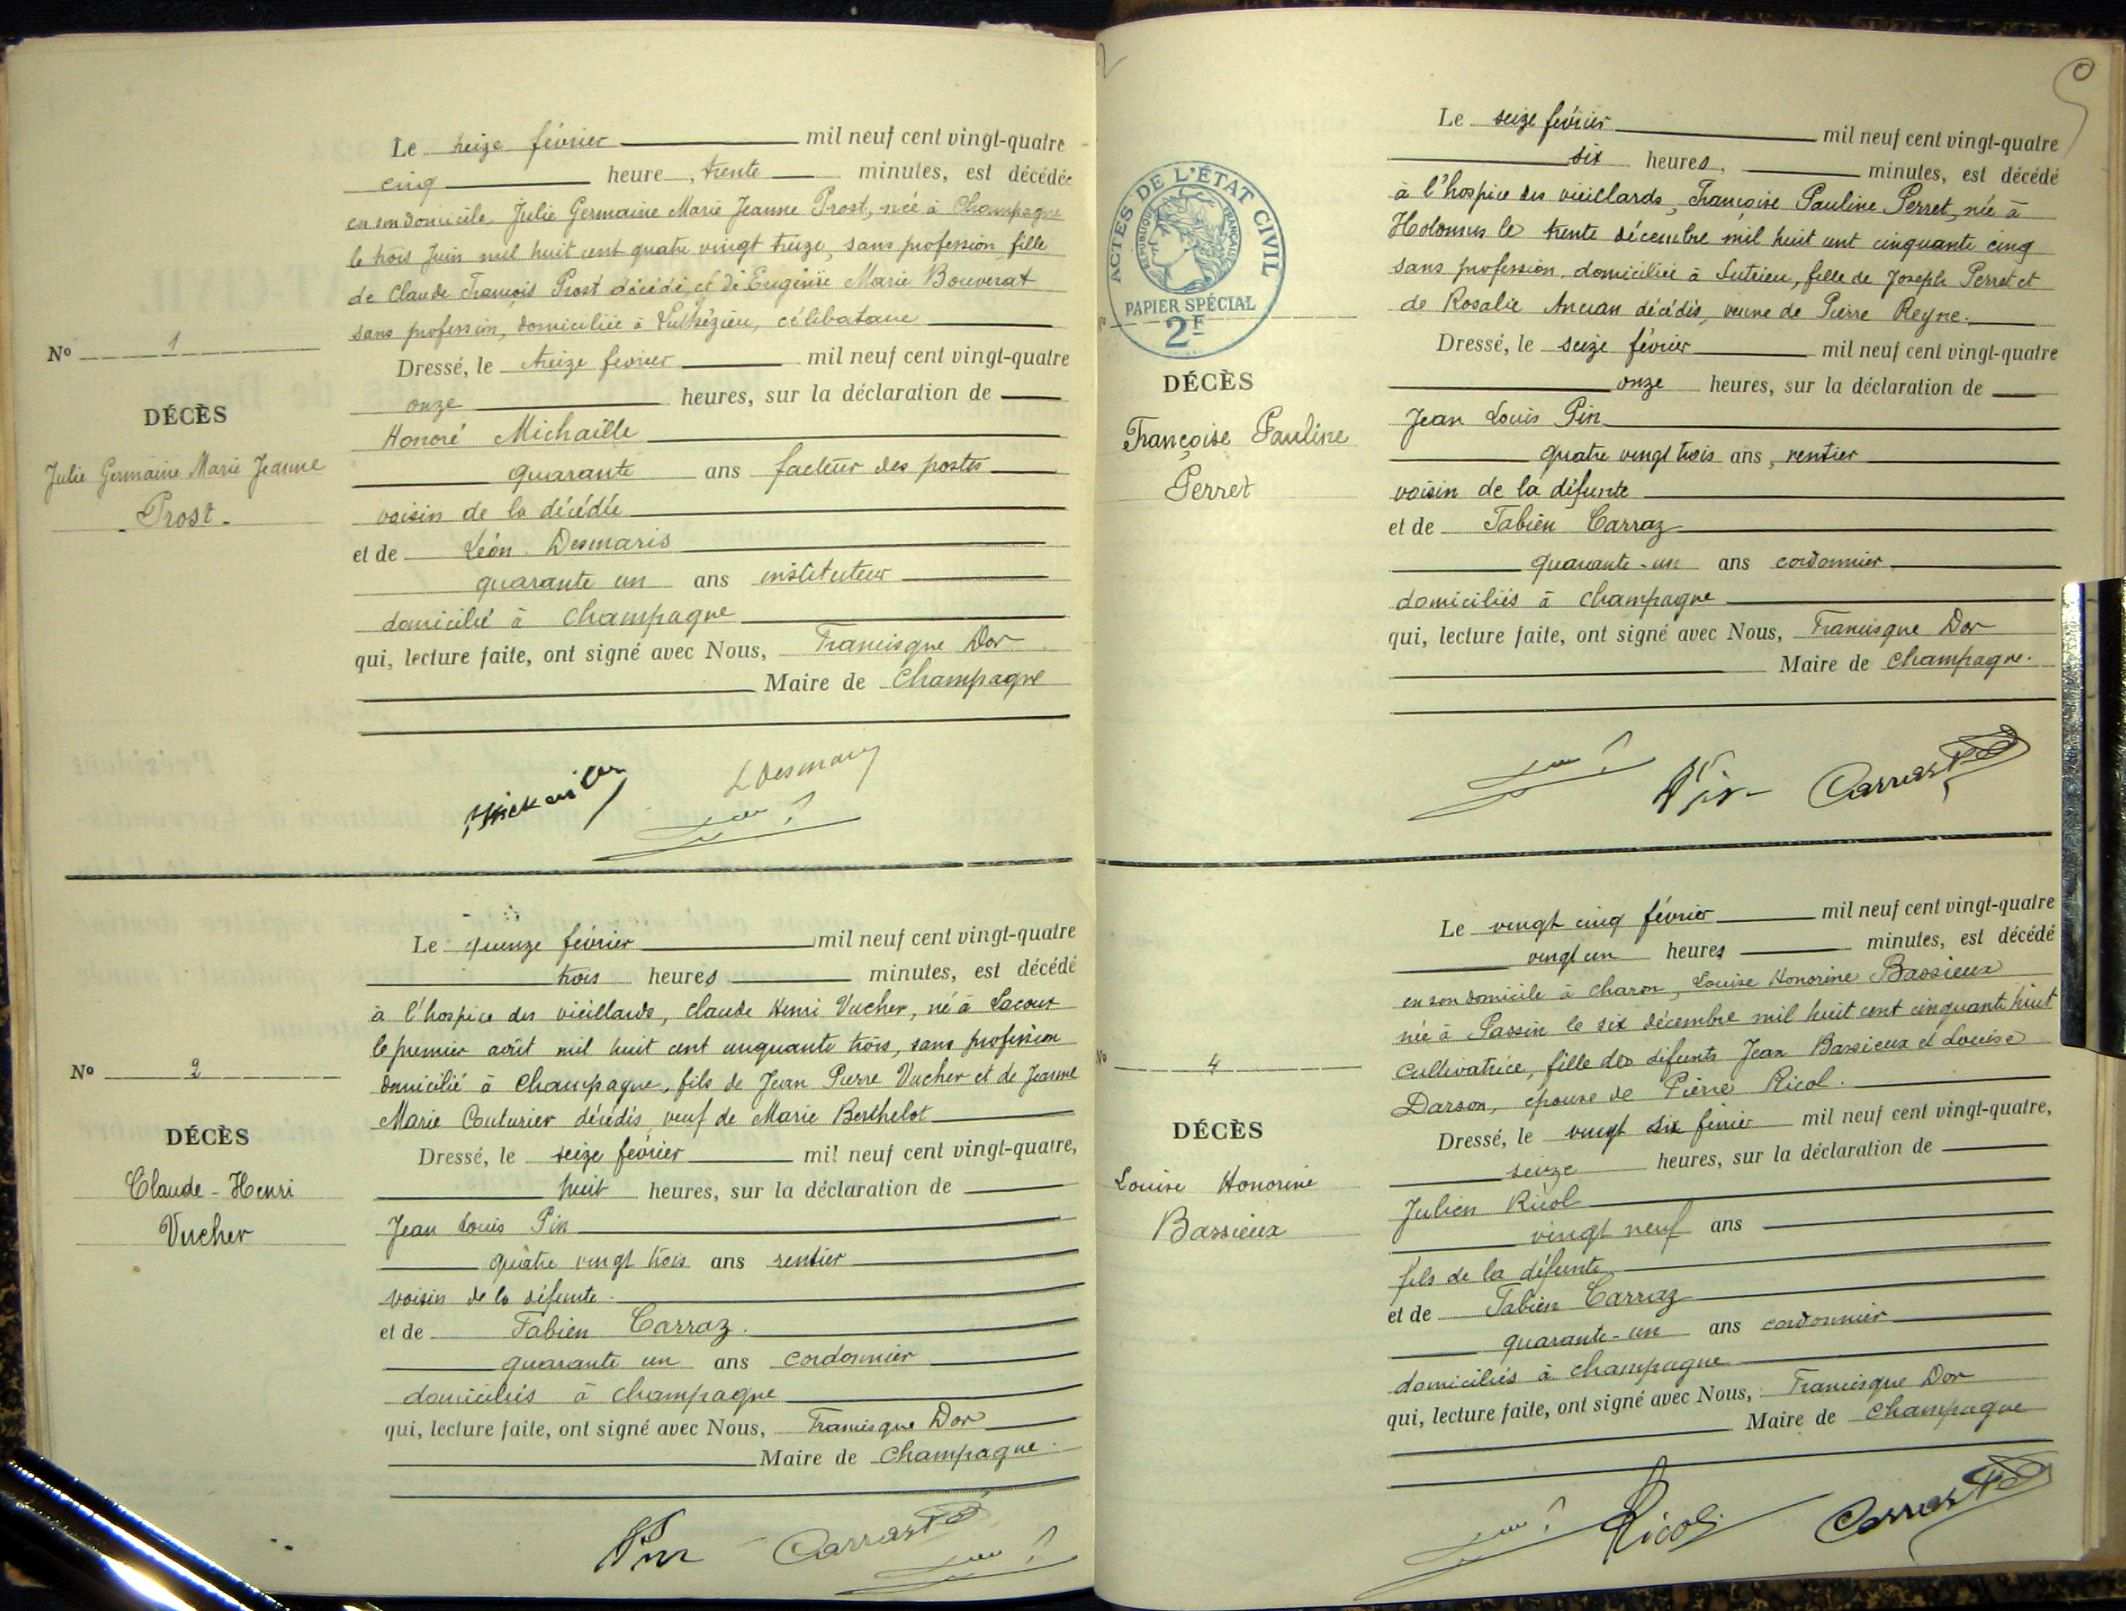 Le treize février mil neuf cent vingt-quatre
cinq heure, trente minutes, est décédée
en son domicile Julie Germaine Marie Jeanne Prost, née à Champagne
le trois Juin mil huit cent quatre vingt treize, sans profession, fille
de Claude François Prost décédé, et de Eugénie Marie Bouverat
sans profession, domiciliée à Luthézieu, célibataire
Nº 1
Dressé, le treize février mil neuf cent vingt-quatre
onze heures, sur la déclaration de
DÉCÈS
Honoré Michaille
Julie Germaine Marie Jeanne
Prost
quarante ans facteur des postes
voisin de la décédée
et de Léon Desmaris
quarante un ans instituteur
domicilié à Champagne
qui, lecture faite, ont signé avec Nous, Francisque Dor
Maire de Champagne
L Desmaris
Le quinze février mil neuf cent vingt-quatre
trois heures minutes, est décédé
à l'hospice des vieillards, Claude Henri Vucher, né à Lacour
le premier août mil huit cent cinquante trois, sans profession
domicilié à Champagne, fils de Jean Pierre Vucher et de Jeanne
Marie Couturier décédés, veuf de Marie Berthelot
Nº 2
DÉCÈS
Claude-Henri
Vucher
Dressé, le seize février mil neuf cent vingt-quatre,
huit heures, sur la déclaration de
Jean Louis Pin
quatre vingt trois ans rentier
voisin de la défunte
et de Fabien Carraz
quarante un ans cordonnier
domiciliés à Champagne
qui, lecture faite, ont signé avec Nous, Francisque Dor
Maire de Champagne
Pin Carraz
ACTES DE L'ÉTAT CIVIL
RÉPUBLIQUE FRANÇAISE
PAPIER SPÉCIAL
2F
Le seize février mil neuf cent vingt-quatre
six heures, minutes, est décédé
à l'hospice des vieillards, Françoise Pauline Perret, née à
le trente décembre mil huit cent cinquante cinq
sans profession domiciliée à Sutrieu, fille de Joseph Perret et
de Rosalie Ancian décédés, veuve de Pierre Reyne.
DÉCÈS
Françoise Pauline
Perret
Dressé, le seize février mil neuf cent vingt-quatre
onze heures, sur la déclaration de
Jean Louis Pin
quatre vingt trois ans, rentier
voisin de la défunte
et de Fabien Carraz
quarante-un ans cordonnier
domiciliés à Champagne
qui, lecture faite, ont signé avec Nous, Francisque Dor
Maire de Champagne.
Pin Carraz
Le vingt cinq février mil neuf cent vingt-quatre
vingt un heures minutes, est décédé
en son domicile à Charon, Louise Honorine Bassieux
née à Passin le six décembre mil huit cent cinquante huit
cultivatrice, fille des défunts Jean Bassieux et Louise
Darson, épouse de Pierre Ricol.
Nº 4
DÉCÈS
Louise Honorine
Bassieux
Dressé, le vingt six février mil neuf cent vingt-quatre,
seize heures, sur la déclaration de
Julien Ricol
vingt neuf ans
fils de la défunte
et de Fabien Carraz
quarante-un ans cordonnier
domiciliés à Champagne
qui, lecture faite, ont signé avec Nous, Francisque Dor
Maire de Champagne
Ricol Carraz